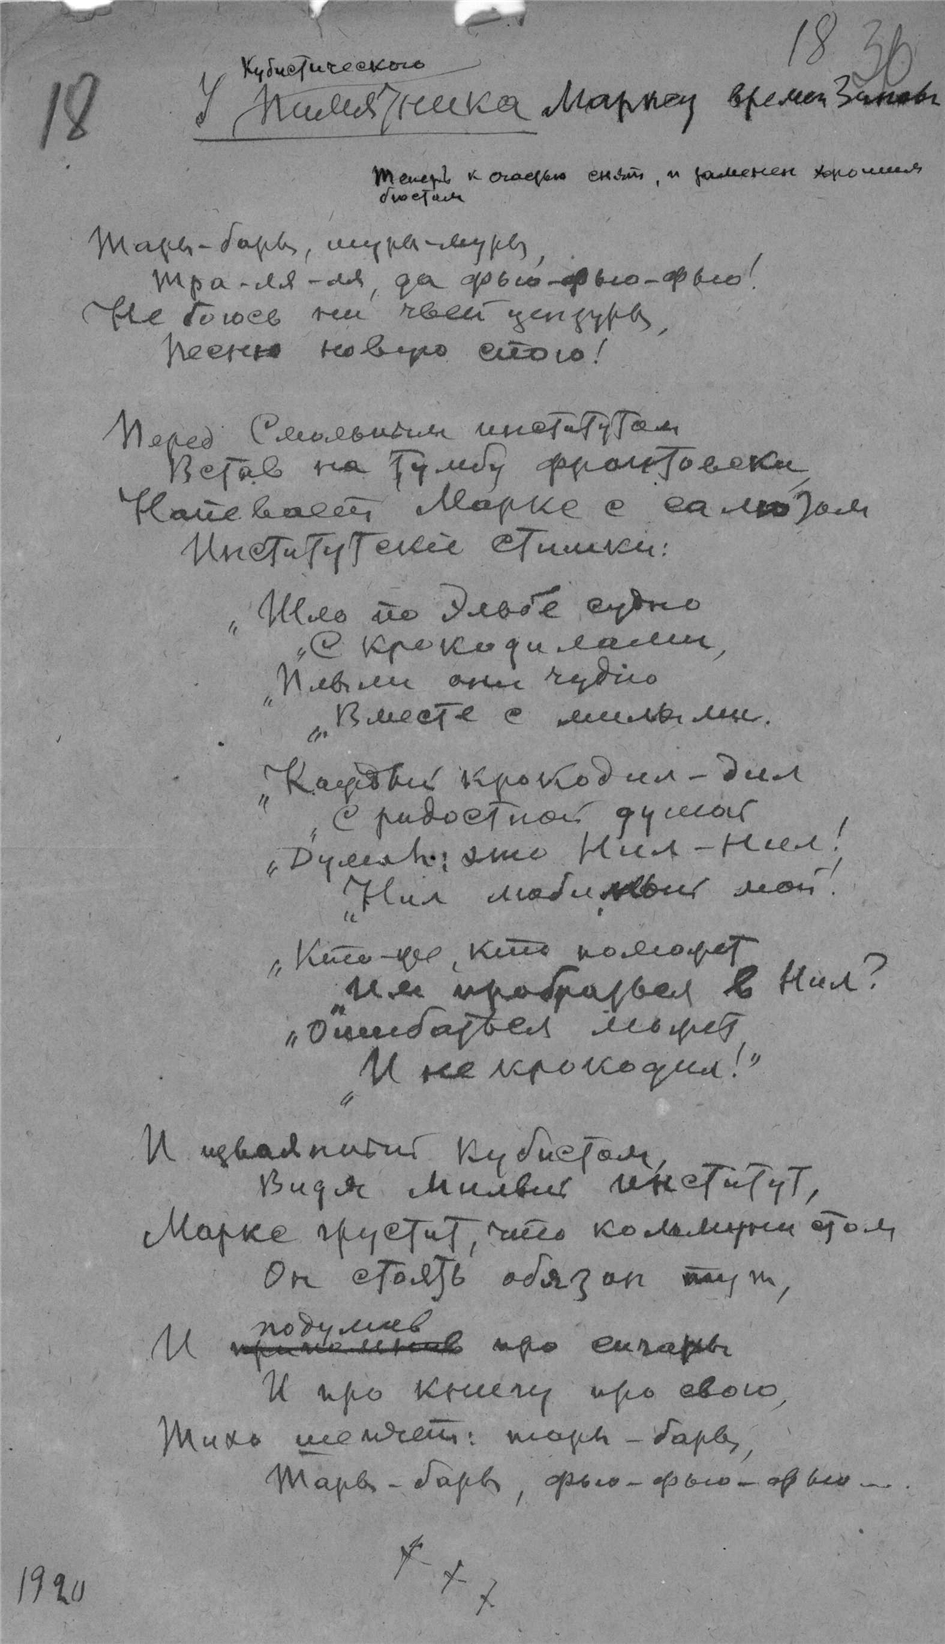 18 36
18
Кубистического
У Памятника Марксу времен Зиновь
теперь к счастью снят, и заменен хорошим
бюстом
Тары-бары, шуры-муры,
Тра-ля-ля, да фью-фью-фью!
Не боюсь ни чьей цензуры,
Песню новую спою!
Перед Смольным институтом
Встав на тумбу франтовски,
Напевает Маркс с салютом
Институтские стишки:
„Шло по Эльбе судно
„С крокодилами,
„Плыли они чудно
„Вместе с милыми.
„Каждый крокодил-дил
„С радостной думой
„Думал: это Нил-Нил!
„Нил любимый мой!
„Кто-же, кто поможет
„Им пробраться в Нил?
„Ошибаться может
„И не крокодил!"
И изваянный кубистом,
Видя милый институт,
Маркс грустит, что коммунистом
Он стоять обязан тут,
подумав
И припомнив про сигары
И про книгу про свою,
Тихо шепчет: тары-бары,
Тары-бары, фью-фью-фью....
х х х
1920